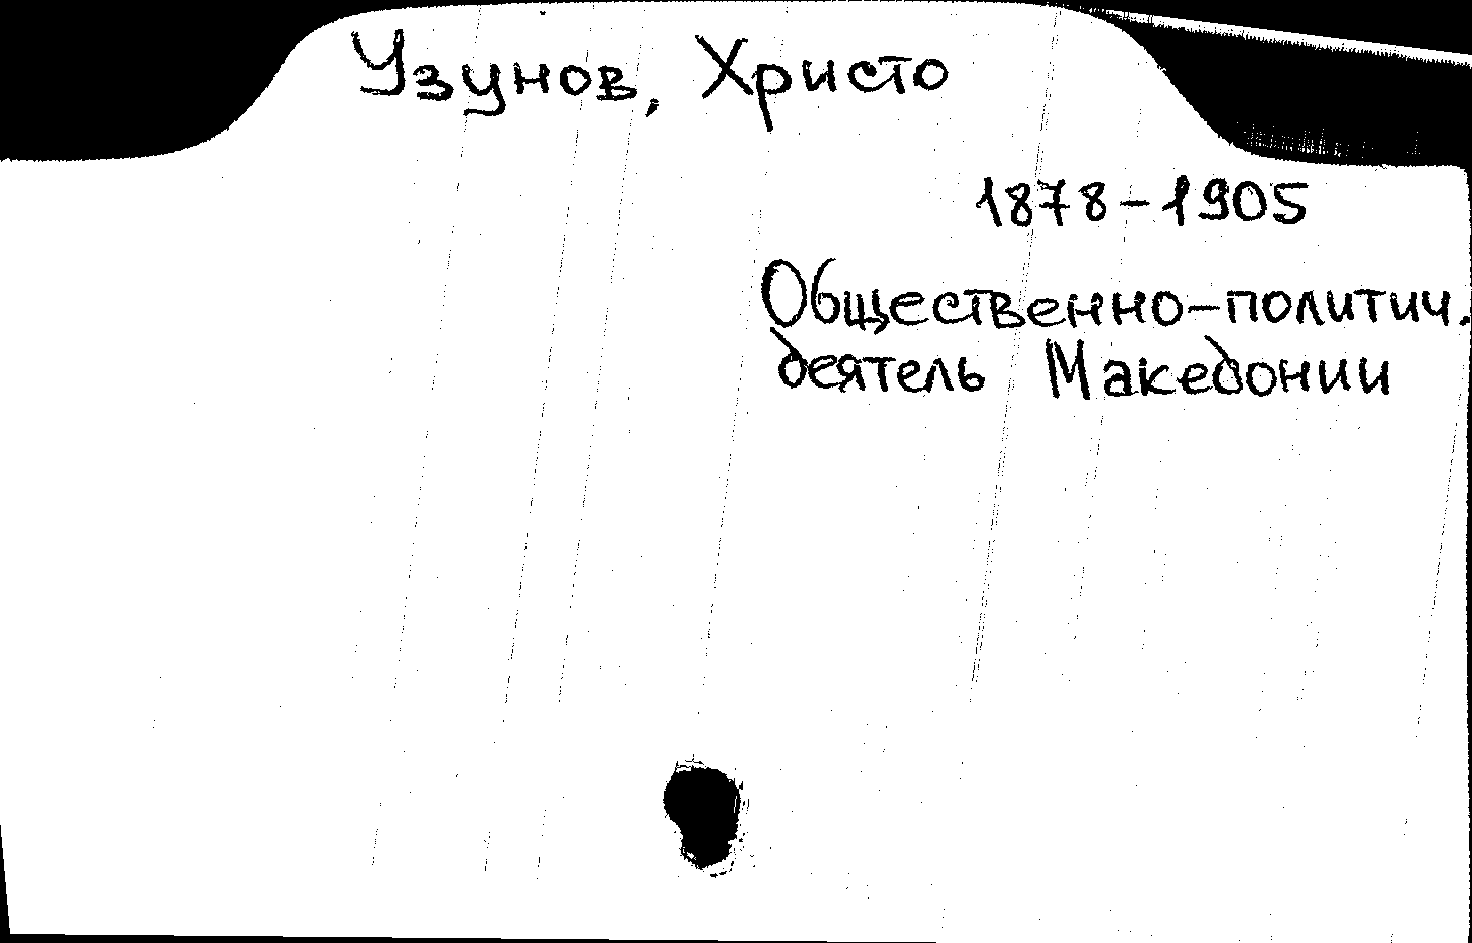 Узунов, Христо
1878-1905
Общественно-политич.
деятель Македонии